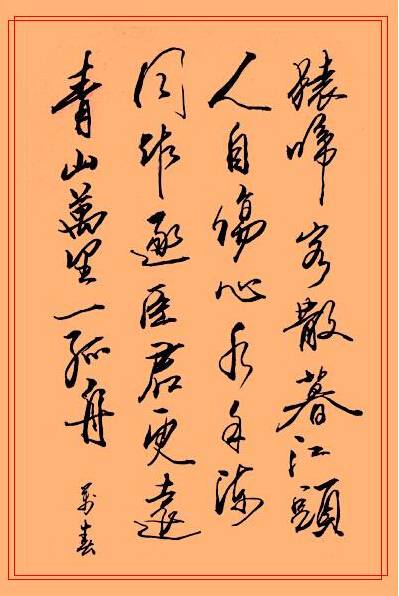 猿啼客散暮江頭
人自傷心水自流
同作逐臣君更遠
青山萬里一孤舟
萬春